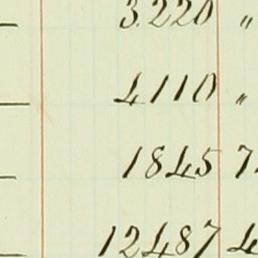 3.220 "
4110 "
1845 7
12487 4